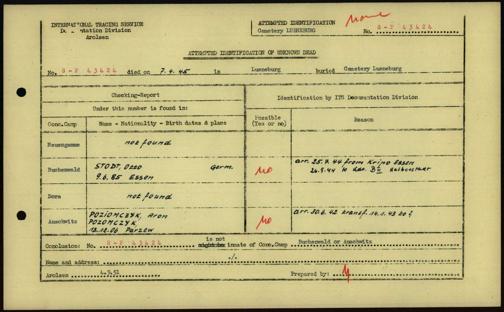 INTERNATIONAL TRACING SERVICE
Documentation Division
Arolsen
ATTEMPTED IDENTIFICATION
Cemetery LUENEBURG No. G-P 43424
None
ATTEMPTED IDENTIFICATION OF UNKNOWN DEAD
No. G-P 43424 died on 7.4.45 in Lueneburg buried Cemetery Lueneburg
Checking-Report
Under this number is found in:
Identification by ITS Documentation Division
Conc.Camp
Name - Nationality - Birth dates & place
Possible
(Yes or no)
Reason
Neuengamme
not found
Buchenwald
STODT, Otto Germ.
9.6.85 Essen
no
arr. 25.9.44 from Kripo Essen
Dora
not found
Auschwitz
POZIOMCZYK, Aron
POZOMCZYK,
13.12.06 Parzew
no
arr. 30.6.42 transf.
Conclusion: No. G-P 43424 is not inmate of Conc.Camp Buchenwald or Auschwitz
Name and address: ./.
Arolsen 4.9.51 Prepared by: